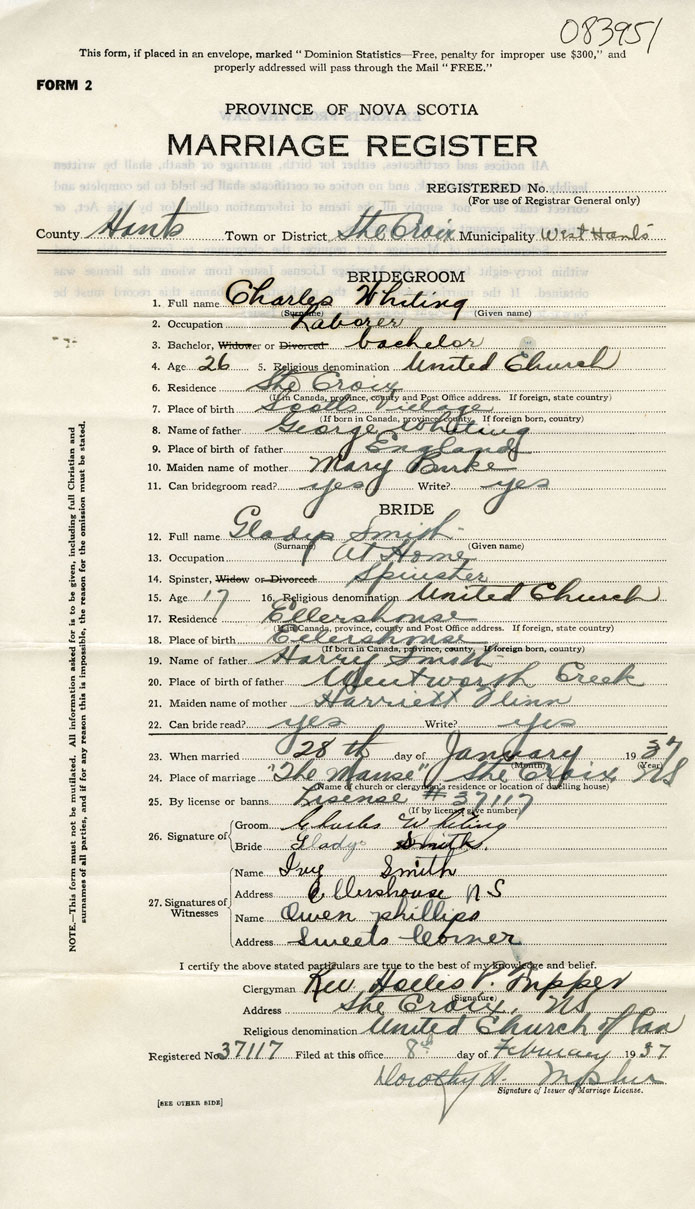 083951
This form, if placed in an envelope, marked "Dominion Statistics—Free, penalty for improper use $300," and
properly addressed will pass through the Mail "FREE."
FORM 2
PROVINCE OF NOVA SCOTIA
MARRIAGE REGISTER
REGISTERED No.
(For use of Registrar General only)
County Hants Town or District Ste Croix Municipality West Hants
BRIDEGROOM
1. Full name Charles Whiting
(Surname) (Given name)
2. Occupation Laborer
3. Bachelor, Widower or Divorced bachelor
4. Age 26 5. Religious denomination United Church
6. Residence Ste Croix
(If in Canada, province, county and Post Office address. If foreign, state country)
7. Place of birth Scotts
(If born in Canada, province, county. If foreign born, country)
8. Name of father George Whiting
9. Place of birth of father England
10. Maiden name of mother Mary Burke
11. Can bridegroom read? yes Write? yes
BRIDE
12. Full name Gladys Smith
(Surname) (Given name)
13. Occupation At Home
14. Spinster, Widow or Divorced Spinster
15. Age 17 16. Religious denomination United Church
17. Residence Ellershouse
(If in Canada, province, county and Post Office address. If foreign, state country)
18. Place of birth Ellershouse
(If born in Canada, province, county. If foreign born, country)
19. Name of father Harry Smith
20. Place of birth of father Wentworth Creek
21. Maiden name of mother Harriett
22. Can bride read? yes Write? yes
23. When married 28th day of January 1937
(Month) (Year)
24. Place of marriage "The Manse" Ste Croix NS
(Name of church or clergyman's residence or location of dwelling house)
25. By license or banns Lisense # 37117
(If by license, give number)
26. Signature of
Groom Charles Whiting
Bride Gladys Smith.
27. Signatures of Witnesses
Name Ivy Smith
Address Ellershouse NS
Name Owen phillips
Address Sweets Corner
I certify the above stated particulars are true to the best of my knowledge and belief.
Clergyman Rev Hollis P.
(Signature)
Address Ste Croix, NS
Religious denomination United Church of Can
Registered No. 37117 Filed at this office 8th day of February 1937
Dorothy H.
Signature of Issuer of Marriage License.
[SEE OTHER SIDE]
NOTE.—This form must not be mutilated. All information asked for is to be given, including full Christian and
surnames of all parties, and if for any reason this is impossible, the reason for the omission must be stated.